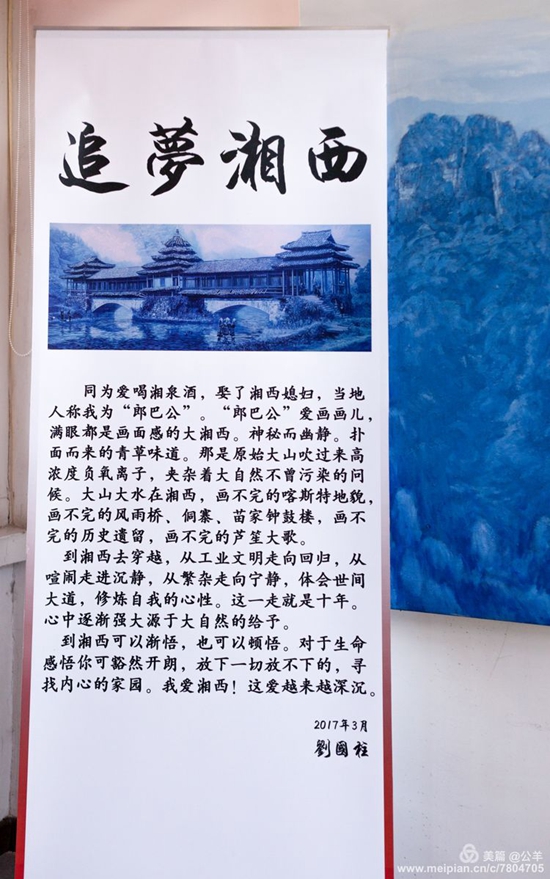 追夢湘西
同为爱喝湘泉酒，娶了湘西媳妇，当地
人称我为“郎巴公”。“郎巴公”爱画画儿，
满眼都是画面感的大湘西。神秘而幽静。扑
面而来的青草味道。那是原始大山吹过来高
浓度负氧离子，夹杂着大自然不曾污染的问
候。大山大水在湘西，画不完的喀斯特地貌，
画不完的风雨桥、侗寨、苗家钟鼓楼，画不
完的历史遗留，画不完的芦笙大歌。
到湘西去穿越，从工业文明走向回归，从
喧闹走进沉静，从繁杂走向宁静，体会世间
大道，修炼自我的心性。这一走就是十年。
心中逐渐强大源于大自然的给予。
到湘西可以渐悟，也可以顿悟。对于生命
感悟你可豁然开朗，放下一切放不下的，寻
找内心的家园。我爱湘西！这爱越来越深沉。
2017年3月
劉國柱
美篇 @公羊
www.meipian.cn/c/7804705